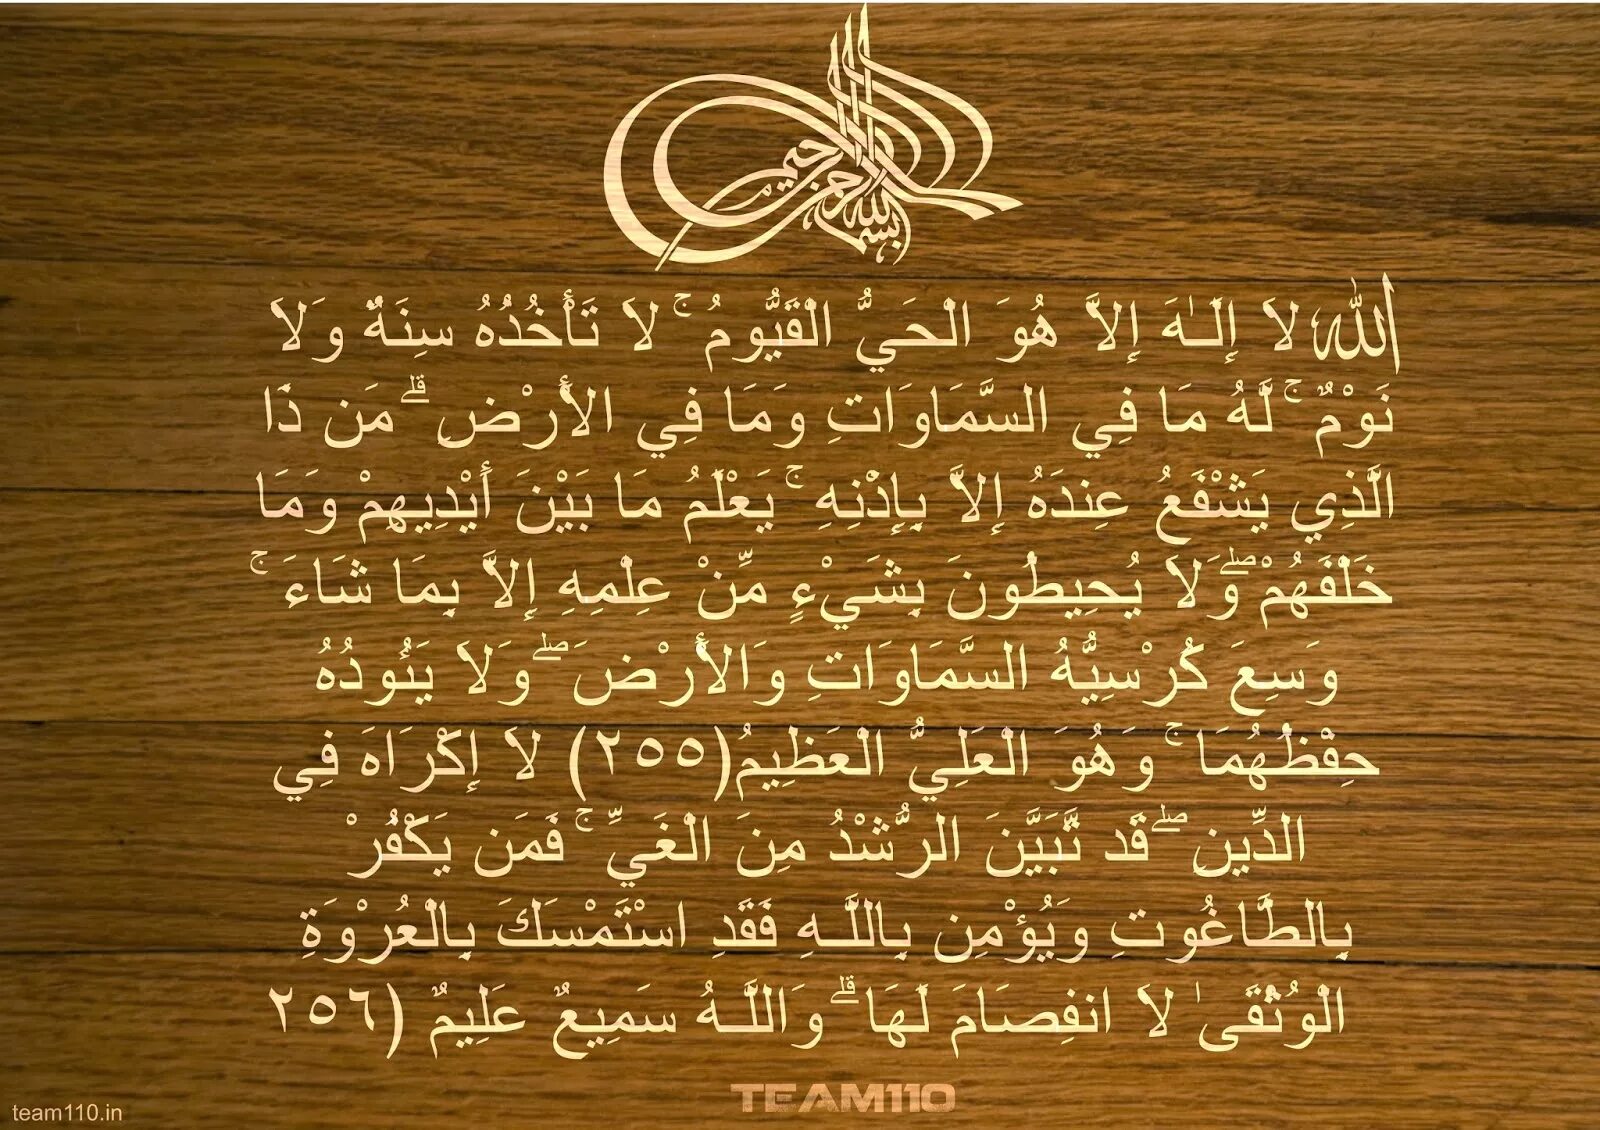 بسم الله الرحمن الرحيم
الله لاَ إِلَـٰهَ إِلاَّ هُوَ الْحَيُّ الْقَيُّومُ ۚ لاَ تَأْخُذُهُ سِنَةٌ وَلاَ
نَوْمٌ ۚ لَّهُ مَا فِي السَّمَاوَاتِ وَمَا فِي الأَرْضِ ۗ مَن ذَا
الَّذِي يَشْفَعُ عِندَهُ إِلاَّ بِإِذْنِهِ ۚ يَعْلَمُ مَا بَيْنَ أَيْدِيهِمْ وَمَا
خَلْفَهُمْ ۖ وَلاَ يُحِيطُونَ بِشَيْءٍ مِّنْ عِلْمِهِ إِلاَّ بِمَا شَاءَ ۚ
وَسِعَ كُرْسِيُّهُ السَّمَاوَاتِ وَالأَرْضَ ۖ وَلاَ يَئُودُهُ
حِفْظُهُمَا ۚ وَهُوَ الْعَلِيُّ الْعَظِيمُ(٢٥٥) لاَ إِكْرَاهَ فِي
الدِّينِ ۖ قَد تَّبَيَّنَ الرُّشْدُ مِنَ الْغَيِّ ۚ فَمَن يَكْفُرْ
بِالطَّاغُوتِ وَيُؤْمِن بِاللَّـهِ فَقَدِ اسْتَمْسَكَ بِالْعُرْوَةِ
الْوُثْقَىٰ لاَ انفِصَامَ لَهَا ۗ وَاللَّـهُ سَمِيعٌ عَلِيمٌ (٢٥٦
TEAM110
team110.in